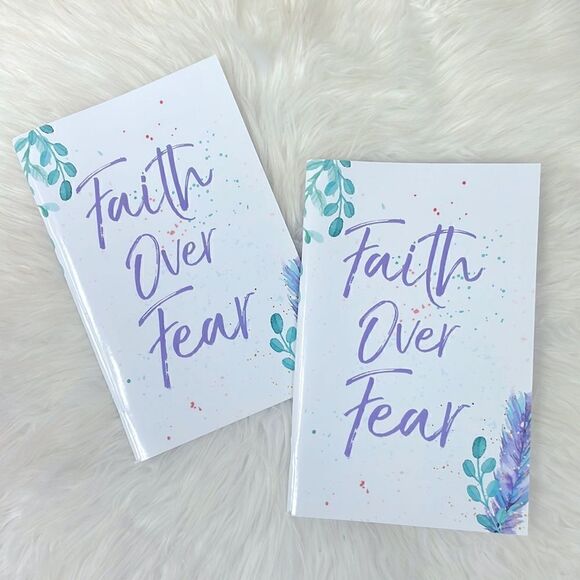 Faith
Over
Fear
Faith
Over
Fear